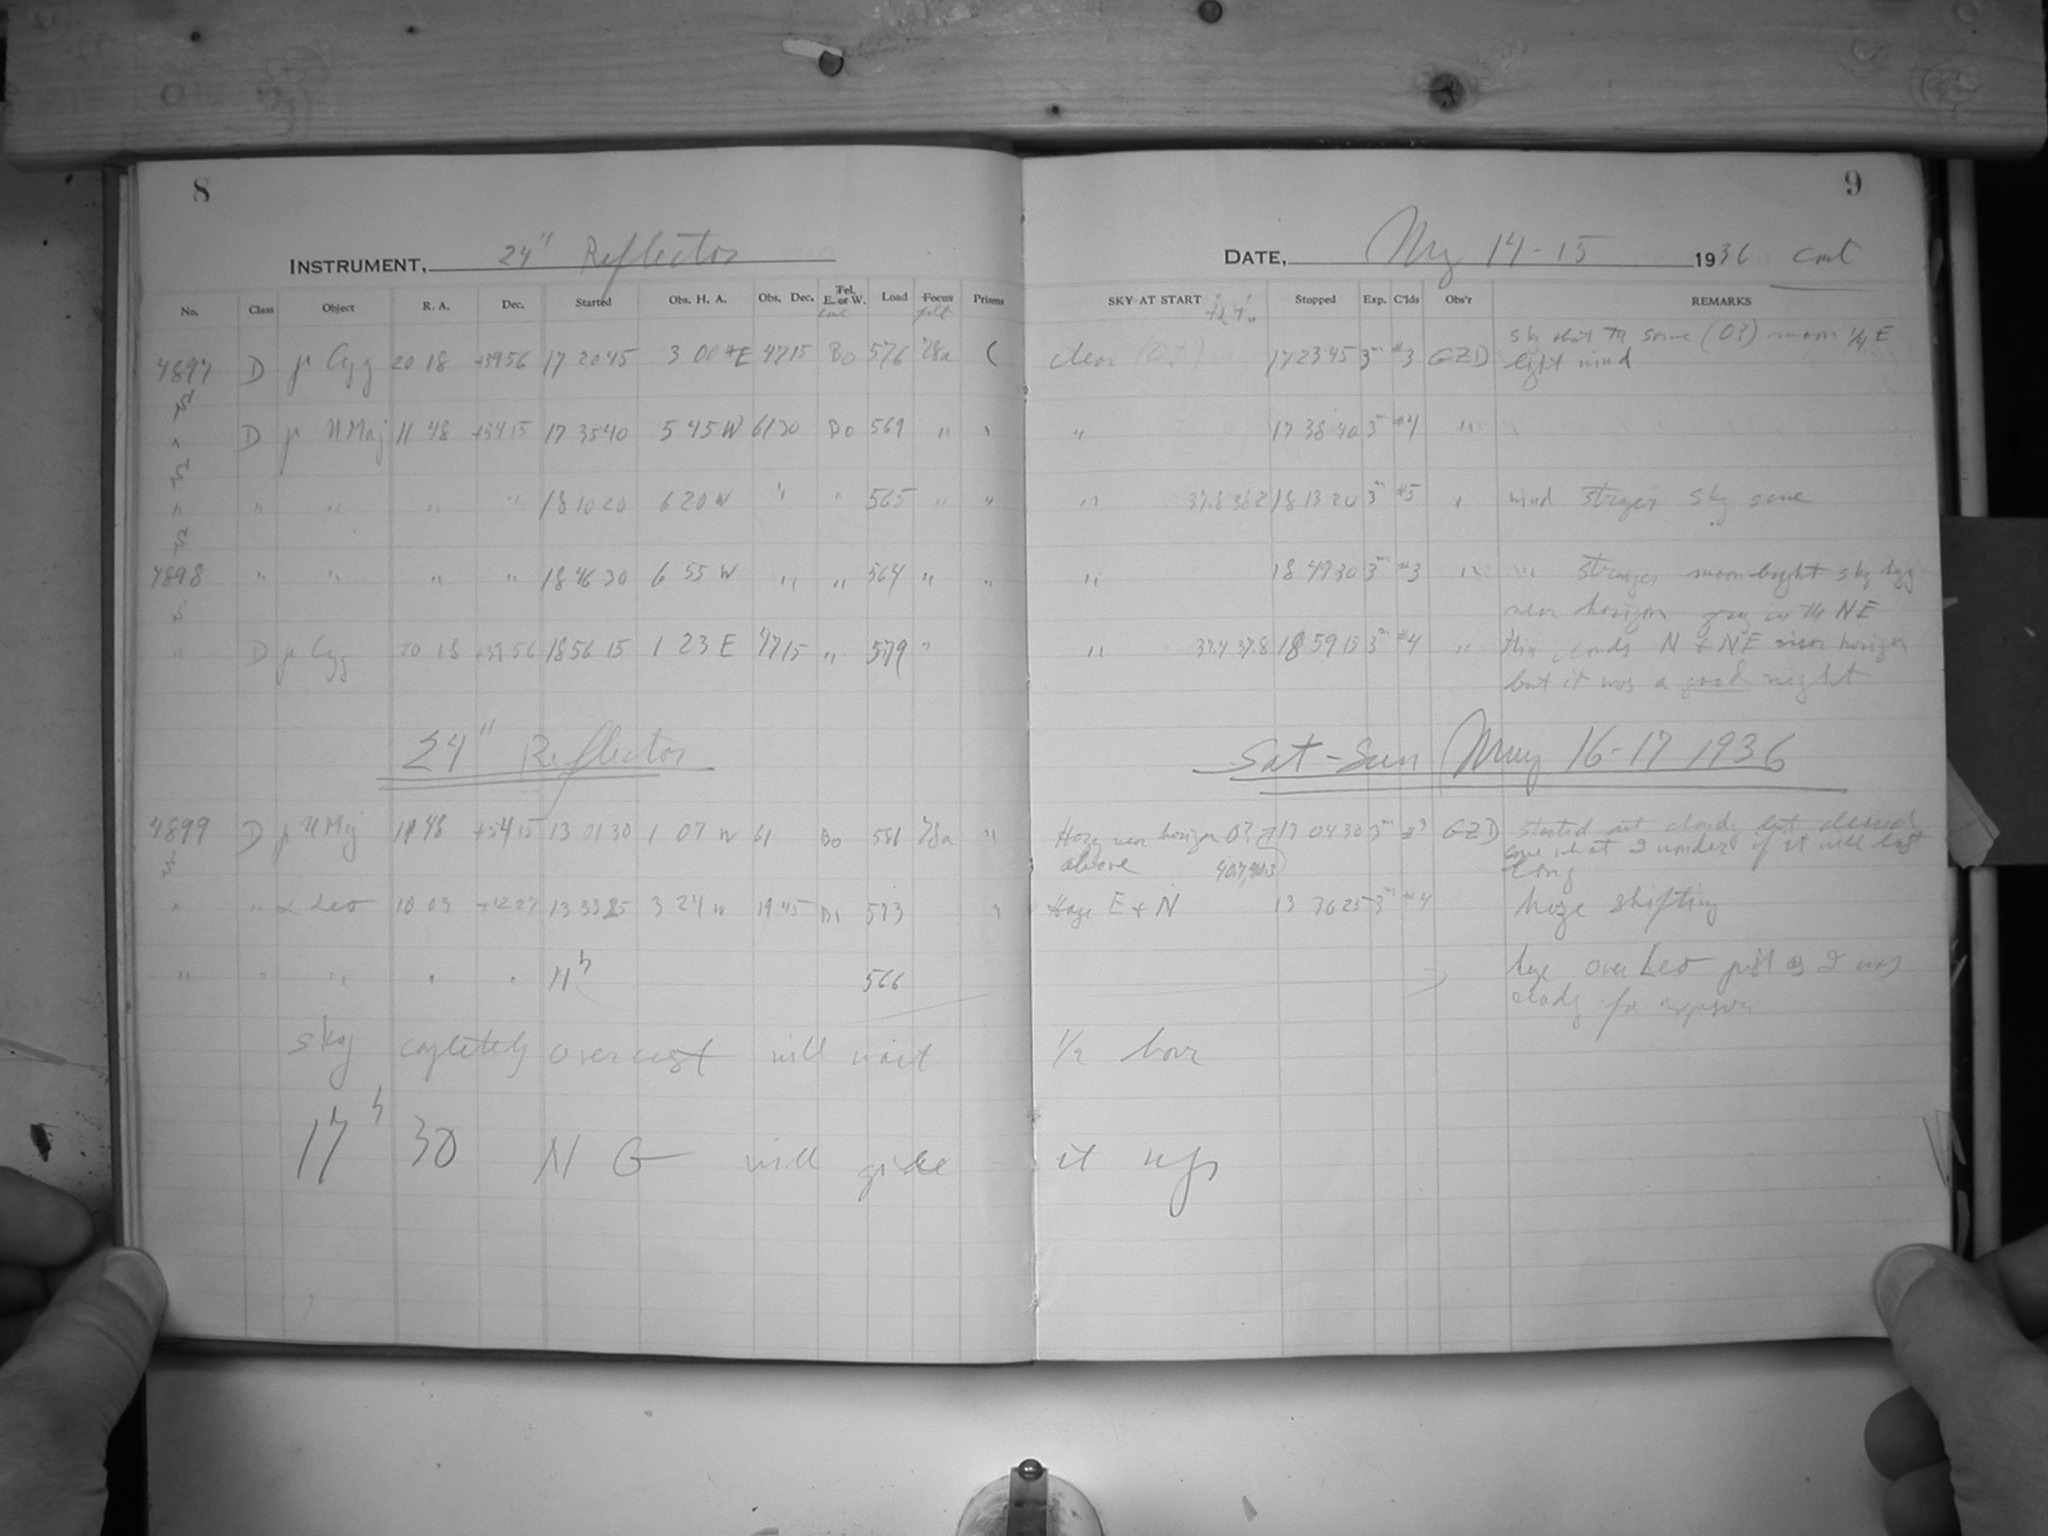 8
INSTRUMENT, 24" Reflector
No. Class Object R. A. Dec. Started Obs. H. A. Obs. Dec. Tel. E. or W. Load Focus Prisms
4897 D μ Cyg 20 18 +3956 17 20 45 3 00 E 4715 Bo 576 78a
" D μ U Maj 11 48 +5415 17 35 40 5 45 W 6130 Bo 569 " "
" " " " " 18 10 20 6 20 W " " 565 " "
4898 " " " " 18 46 30 6 55 W " " 564 " "
" D μ Cyg 20 18 +3956 18 56 15 1 23 E 4715 " 579 "
24" Reflector
4899 D μ U Maj 11 48 +5415 13 01 30 1 07 W 61 Bo 581 78a "
" " α Leo 10 03 +1227 13 33 25 3 24 W 19 45 Bo 573 "
" " " " " 566
sky completely overcast will wait
17 h 30 N G will give
9
DATE, May 14-15 1936 cont
SKY AT START Stopped Exp. C'lds Obs'r REMARKS
sky about the same (0?) moon 1/4 E
clear 17 23 45 3m #3 GZD light wind
" 17 38 40 3m #4 "
" 37.8 38.2 18 13 20 3m #5 " wind stronger sky same
" 18 49 30 3m #3 " " stronger moon bright sky hazy
near horizon grey in the NE
" 37.4 37.8 18 59 15 3m #4 " thin clouds N & NE near horizon
but it was a good night
Sat-Sun May 16-17 1936
Hazy near horizon 0? 13 04 30 3m #3 GZD started out cloudy but cleared
above somewhat I wonder if it will last
long
Haze E & N 13 36 25 3m #4 haze shifting
haze over Leo just as I was
ready for exposure
1/2 hour
it up